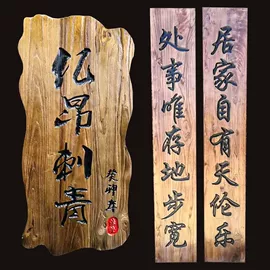 纪昂刺青
居家自有天伦乐
处事唯存地步宽